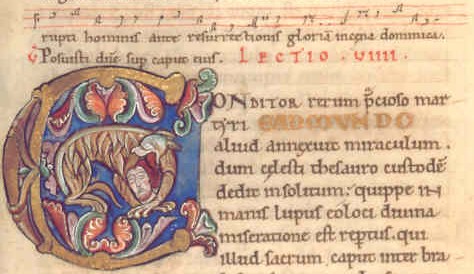 rupti hominis ante resurrectionis gloriã in egna dominica.
℣ Posuisti dñe sup caput eius. LECTIO . VIIII .
CONDITOR rerum p̃cioso mar
tyri EADMUNDO
aliud annexuit miraculum .
dum celesti thesauro custodẽ
dedit insolitum: quippe IN
manis lupus ei loci diuina
miseratione est reptus. qui
illud sacrum caput inter bra